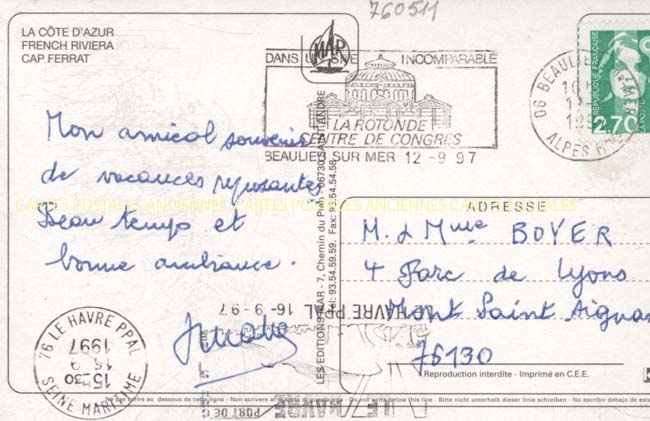 760511
LA CÔTE D'AZUR
FRENCH RIVIERA
CAP FERRAT
MAR
DANS UN SITE INCOMPARABLE
LA ROTONDE
CENTRE DE CONGRES
BEAULIEU SUR MER 12-9 97
06 BEAULIEU S/MER
ALPES
RÉPUBLIQUE FRANÇAISE
2,70
LA POSTE
Mon amical souvenir
de vacances reposantes.
Beau temps et
bonne ambiance.
CARTES POSTALES ANCIENNES CARTES POSTALES ANCIENNES CARTES POSTALES
LES EDITIONS MAR - 7, Chemin du Plan - 06730 SAINT-ANDRE
Tel: 93.54.59.59. Fax: 93.54.54.58
ADRESSE
M. & Mme BOYER
4 Parc de Lyons
Mont Saint Aignan
76130
Reproduction interdite - Imprimé en C.E.E.
76 LE HAVRE PPAL
15H30
16-9
1997
SEINE MARITIME
LE HAVRE PPAL 16-9-97
PORT DE
LE HAVRE
au dessous de cette ligne - Non scrivere Do not write below this line - Bitte nicht unterhalb dieser linie schreiben - No escribir debajo de esta